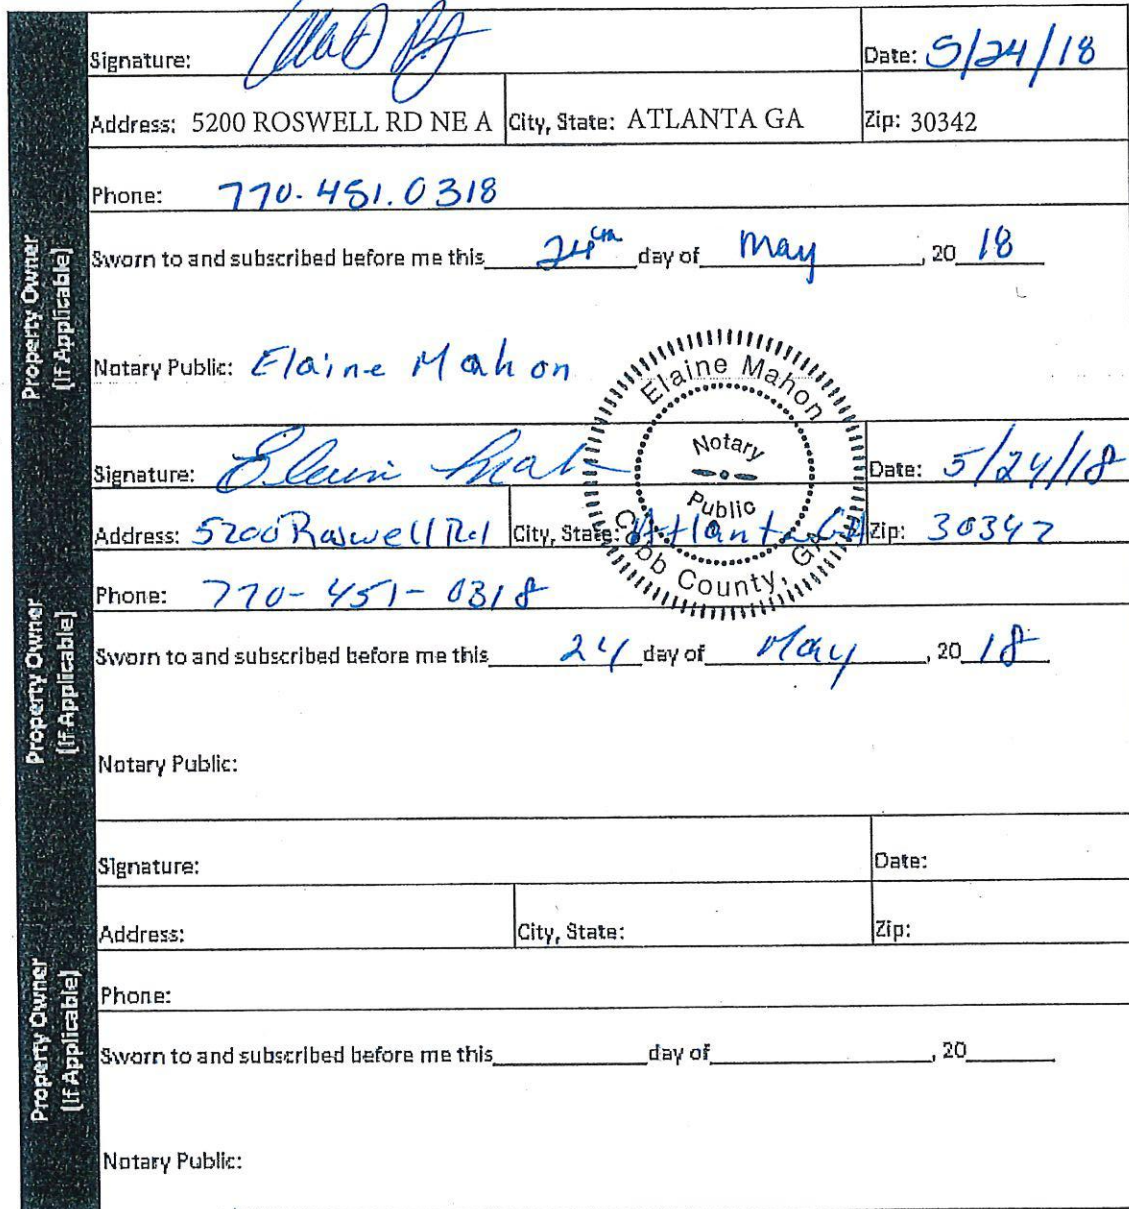 Property Owner
(If Applicable)
Signature: Date: 5/24/18
Address: 5200 ROSWELL RD NE A City, State: ATLANTA GA Zip: 30342
Phone: 770.451.0318
Sworn to and subscribed before me this 24th day of May, 20 18
Notary Public: Elaine Mahon
Elaine Mahon
Notary
Public
Cobb County, GA
Property Owner
(If Applicable)
Signature: Elaine Mahon Date: 5/24/18
Address: 5200 Roswell Rd City, State: Atlanta GA Zip: 30342
Phone: 770-451-0318
Sworn to and subscribed before me this 24 day of May, 20 18
Notary Public:
Property Owner
(If Applicable)
Signature: Date:
Address: City, State: Zip:
Phone:
Sworn to and subscribed before me this day of , 20
Notary Public: